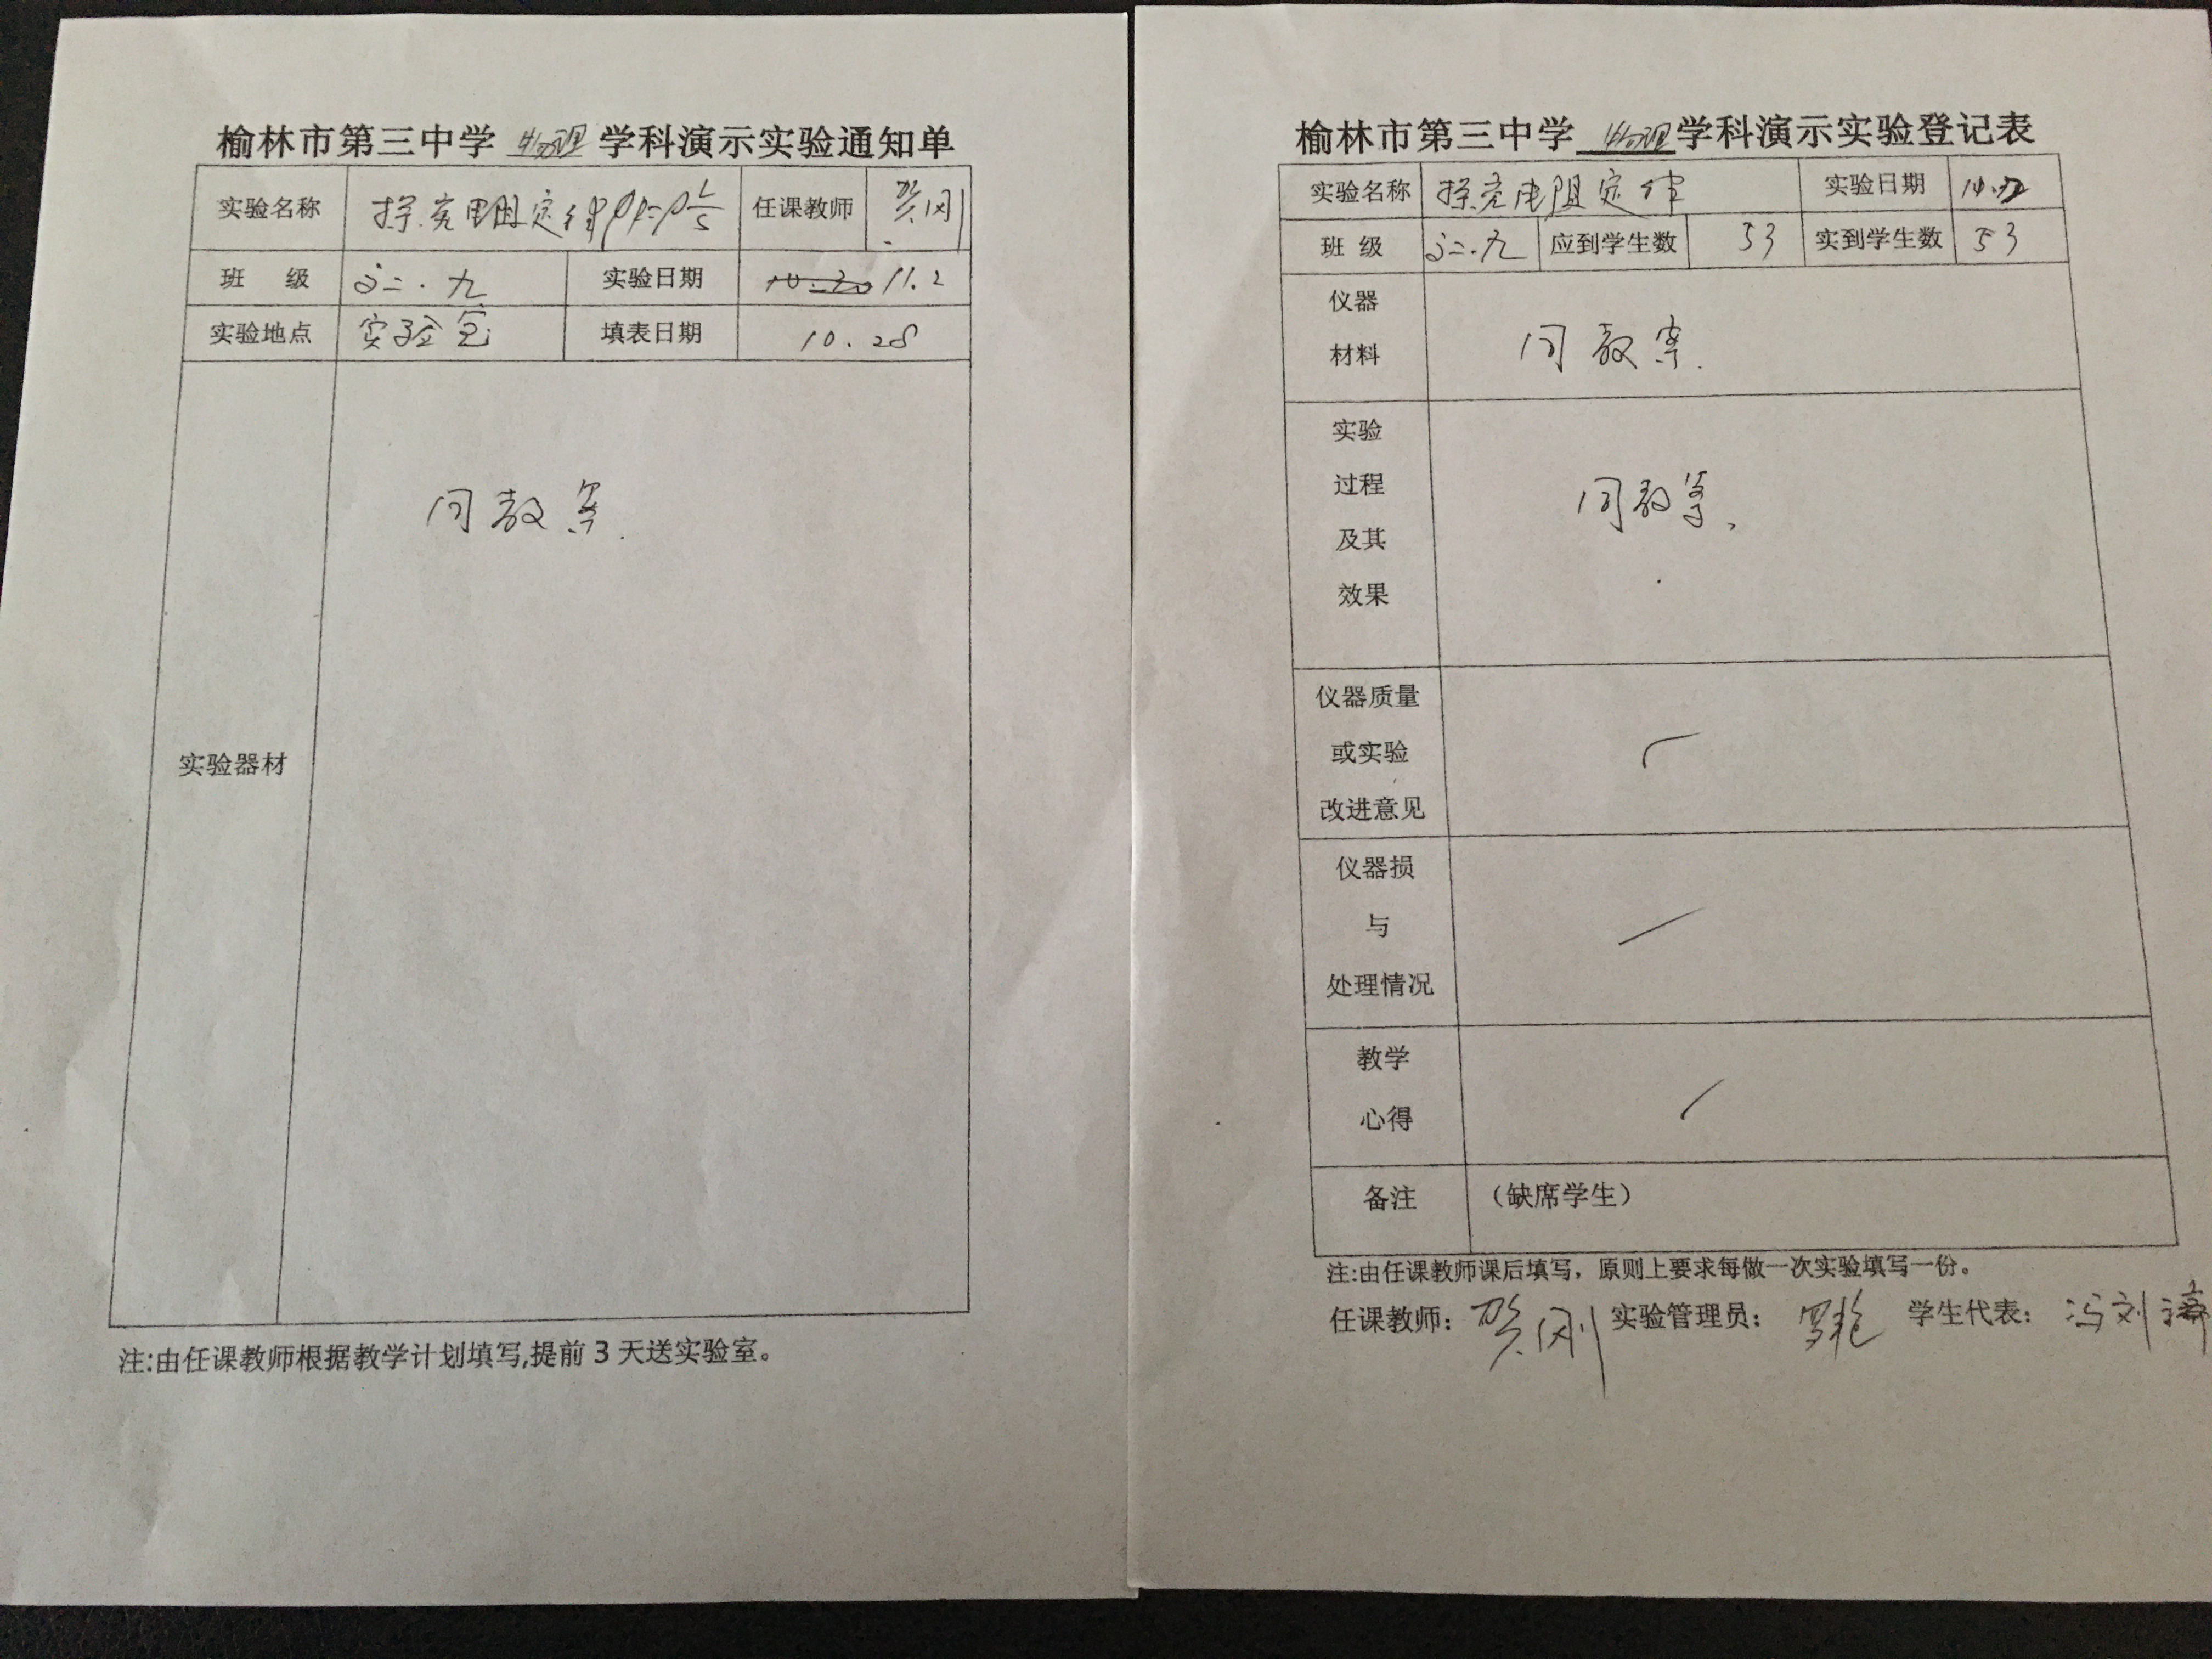 榆林市第三中学 物理 学科演示实验通知单
实验名称 探究电阻定律 R=ρL/S 任课教师 贺刚
班 级 高二·九 实验日期 11.2
实验地点 实验室 填表日期 10.28
实验器材
同教案.
注:由任课教师根据教学计划填写,提前3天送实验室。
榆林市第三中学 物理 学科演示实验登记表
实验名称 探究电阻定律 实验日期
班 级 高二·九 应到学生数 53 实到学生数 53
仪器
材料
同教案.
实验
过程
及其
效果
同教案、
仪器质量
或实验
改进意见
仪器损
与
处理情况
教学
心得
备注 （缺席学生）
注:由任课教师课后填写，原则上要求每做一次实验填写一份。
任课教师: 贺刚 实验管理员: 学生代表: 冯刘